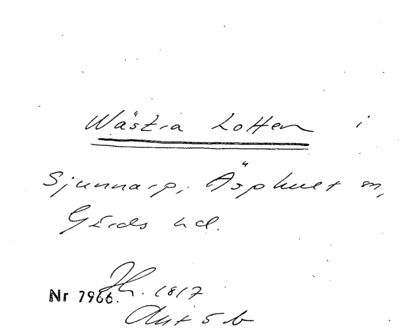 Wästra Lotten i
Sjunnarp, Äsphult sn,
Gärds hd.
Nr 7966. Jh. 1817
Akt 5 b